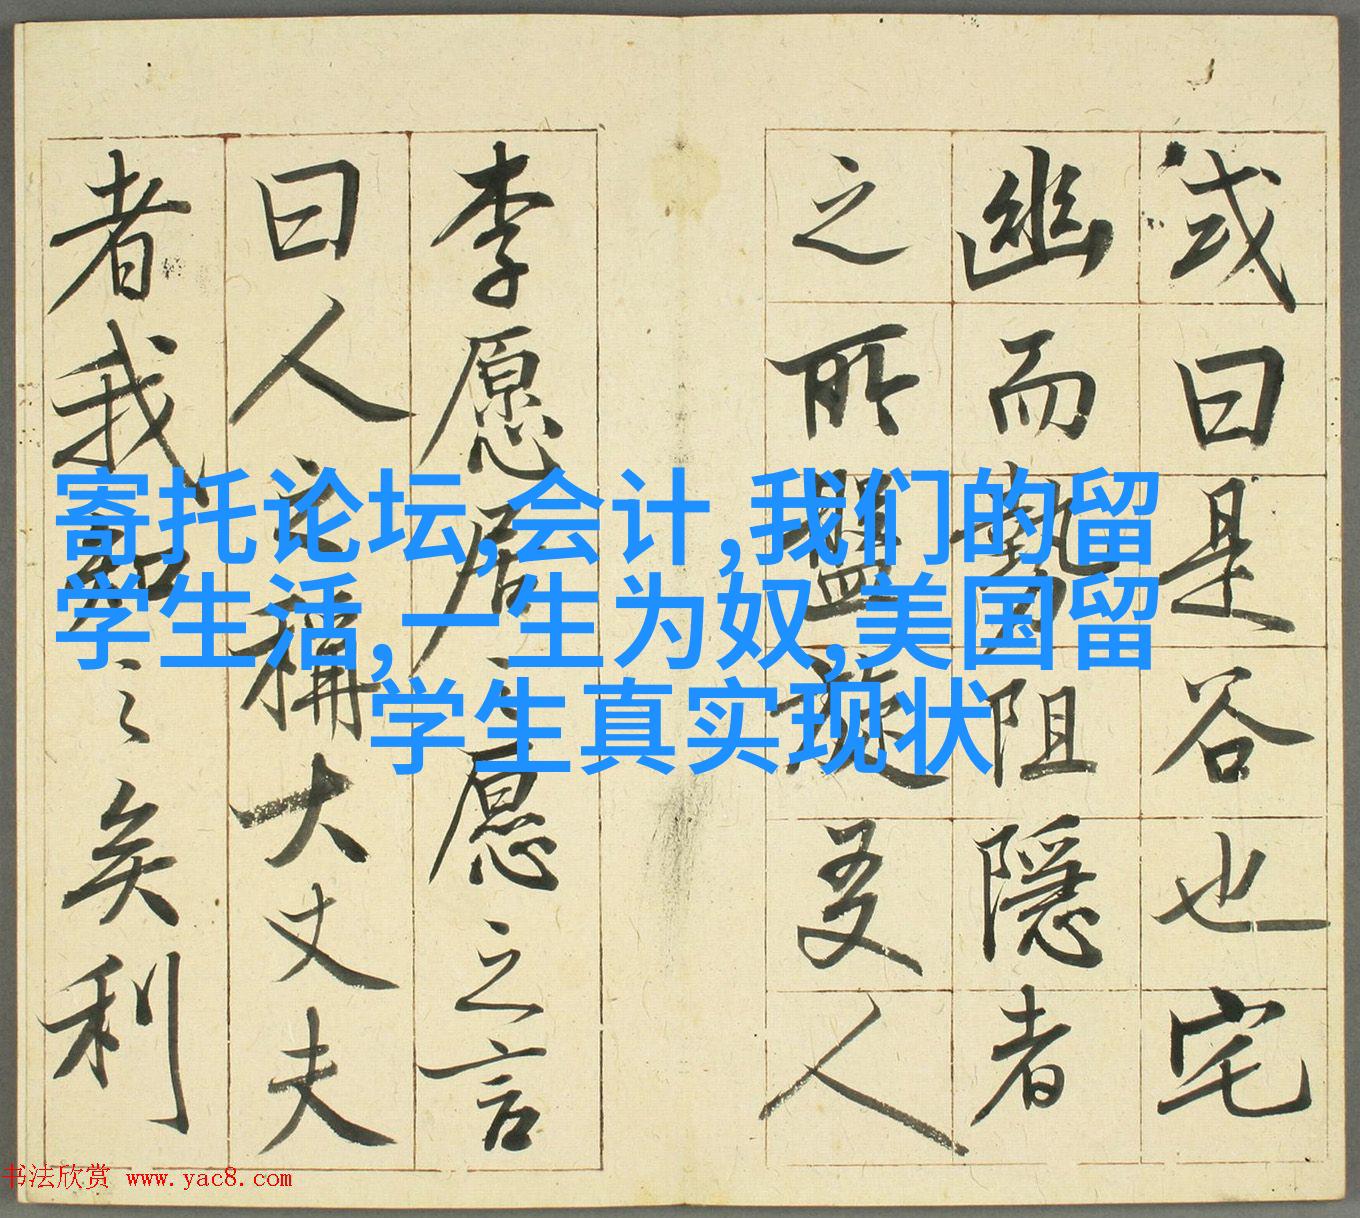 或曰是谷也宅
幽而勢阻隱者
之所盤旋友人
李愿居之愿之言
曰人之稱大丈夫
者我知之矣利
寄托论坛,会计,我们的留
学生活,一生为奴,美国留
学生真实现状
书法欣赏 www.yac8.com